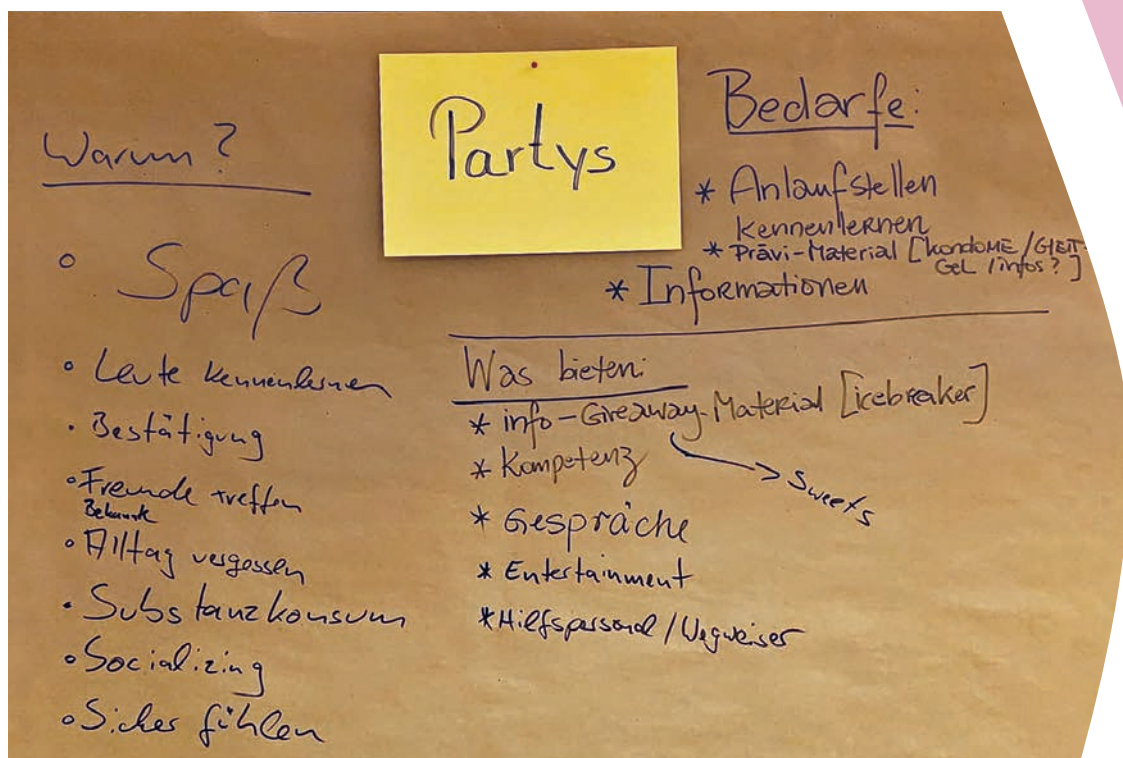 Partys
Warum?
° Spaß
° Leute kennenlernen
· Bestätigung
° Freunde treffen
Bekannte
° Alltag vergessen
· Substanzkonsum
° Socializing
° Sicher fühlen
Bedarfe:
* Anlaufstellen
kennenlernen
* Prävi-Material [Kondome/Gleit-
Gel /infos?]
* Informationen
Was bieten:
* info-Giveaway-Material [icebreaker]
→ Sweets
* Kompetenz
* Gespräche
* Entertainment
* Hilfspersonal/Wegweiser